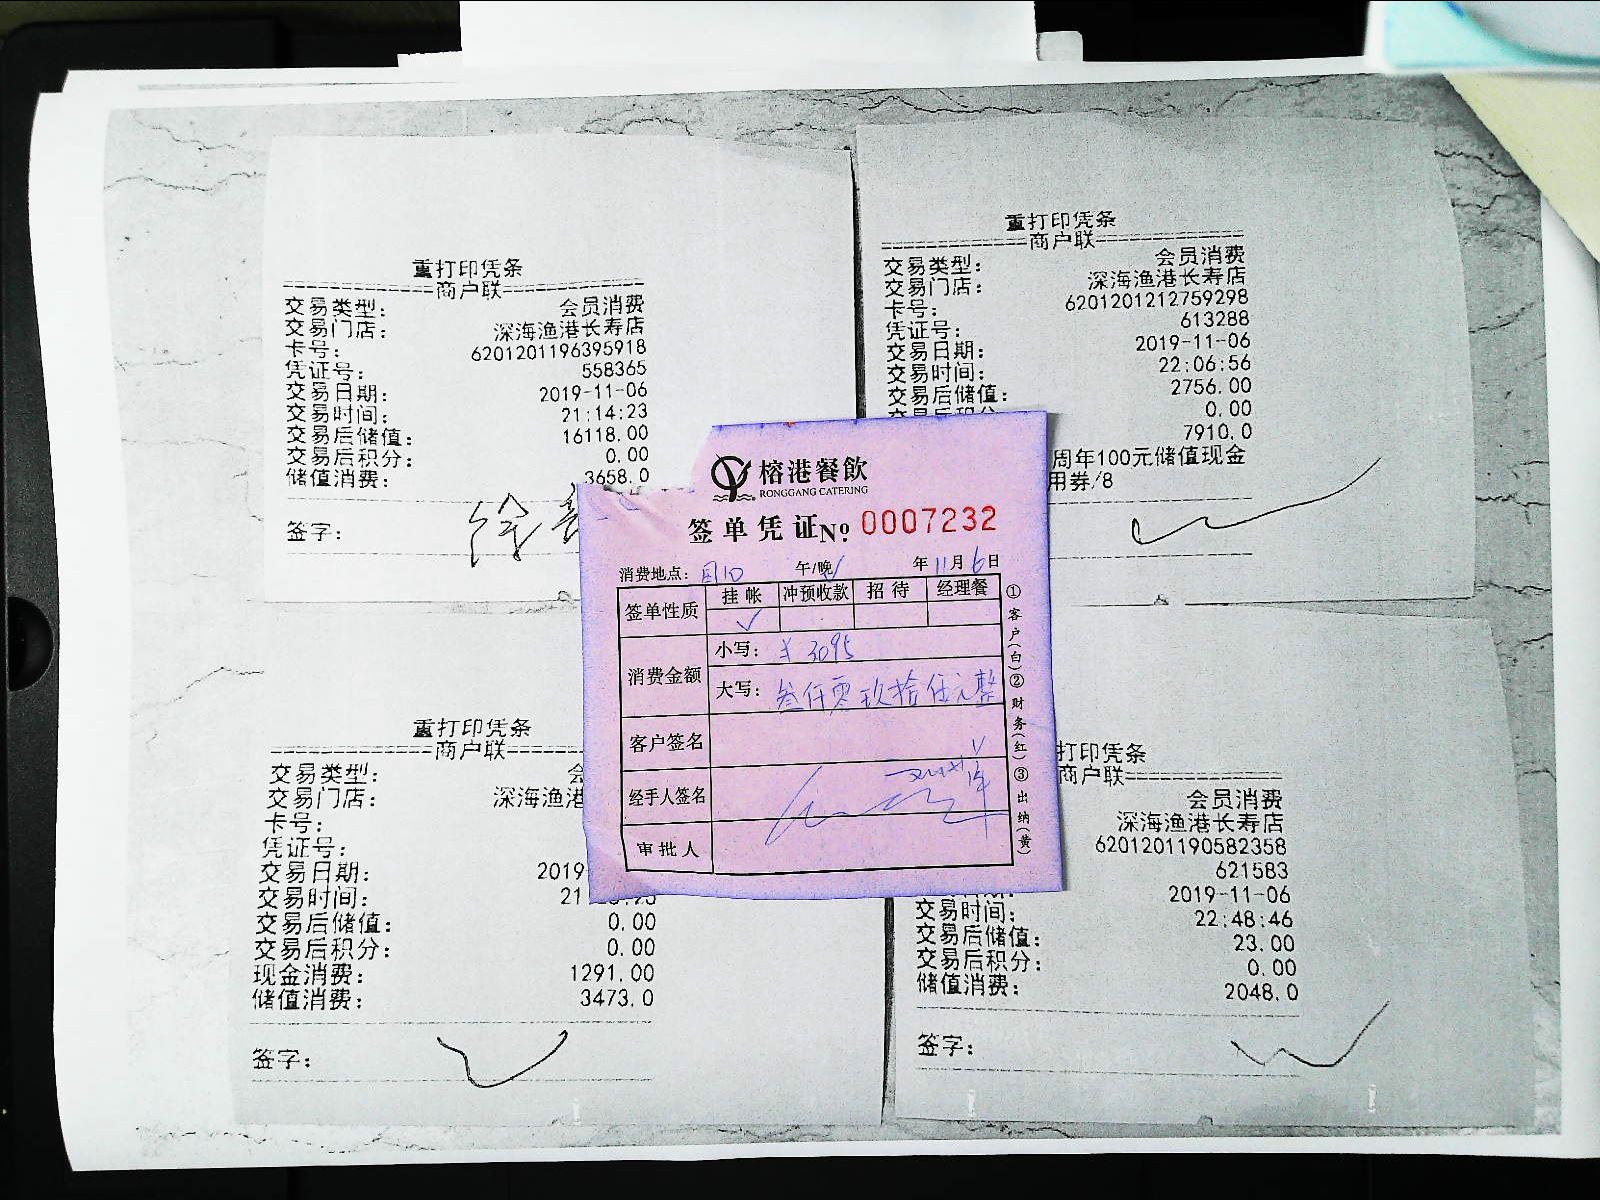 重打印凭条
商户联
交易类型: 会员消费
交易门店: 深海渔港长寿店
卡号: 6201201196395918
凭证号: 558365
交易日期: 2019-11-06
交易时间: 21:14:23
交易后储值: 16118.00
交易后积分: 0.00
储值消费: 3658.0
签字: 徐
重打印凭条
商户联
交易类型: 会员消费
交易门店: 深海渔港长寿店
卡号: 6201201212759298
凭证号: 613288
交易日期: 2019-11-06
交易时间: 22:06:56
交易后储值: 2756.00
交易后积分 0.00
7910.0
周年100元储值现金
用券/8
榕港餐飲
RONGGANG CATERING
签单凭证 No. 0007232
消费地点: 午/晚 年 11月6日
签单性质 挂帐 冲预收款 招待 经理餐
消费金额 小写: ¥3095
大写: 叁仟零玖拾伍元整
客户签名
经手人签名
审批人
①客户(白)②财务(红)③出纳(黄)
重打印凭条
商户联
交易类型: 会
交易门店: 深海渔港
卡号:
凭证号:
交易日期: 2019
交易时间: 21
交易后储值: 0.00
交易后积分: 0.00
现金消费: 1291.00
储值消费: 3473.0
签字:
打印凭条
商户联
会员消费
深海渔港长寿店
6201201190582358
621583
2019-11-06
交易时间: 22:48:46
交易后储值: 23.00
交易后积分: 0.00
储值消费: 2048.0
签字: